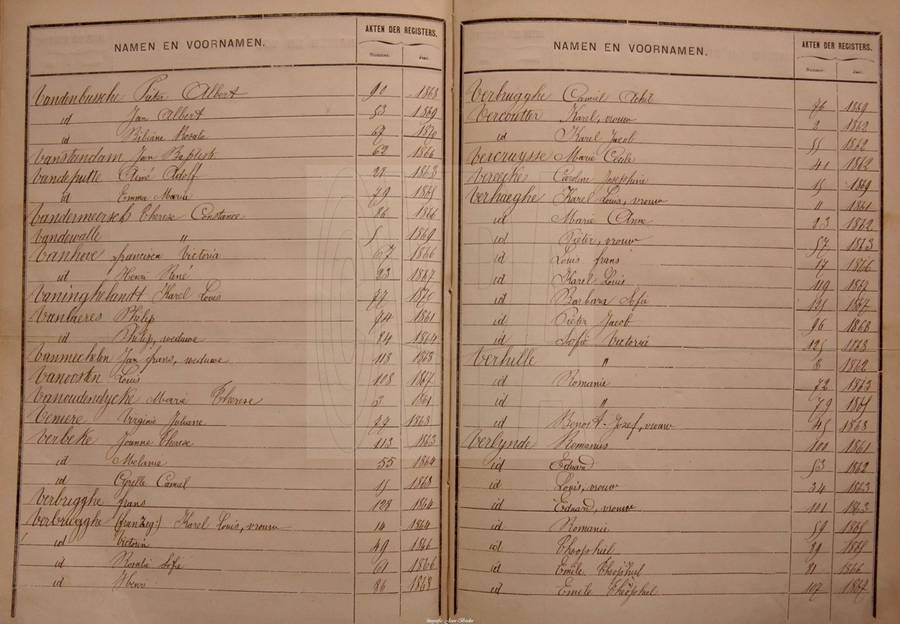 NAMEN EN VOORNAMEN. AKTEN DER REGISTERS.
Nummer. Jaar.
Vandenbussche Pieter Albert 90 1868
id Jan Albert 53 1869
id Bibiane Rosalie 1870
Vanstandam Jan Baptist 62 1866
Vandeputte Aimé Adolf 1863
id Emma Maria 79 1865
Vandermeersch Therese Constance 86 1866
Vandewalle " 1869
Vanhove francisca Victoria 67 1866
id Henri René 23 1867
Vaninghelandt Karel Louis 77 1870
Vanlaeres Philip 94 1861
id Philip, weduwe 84 1864
Vanmichelen Jan frans, weduwe 113 1863
Vanoosten Louis 108 1867
Vanoudendycke Marie Therese 3 1861
Veniere Virginie Juliane 1863
Verbeke Joanna Therese 113 1863
id Melanie 55 1864
id Cyrille Camiel 15 1868
Verbrigghe frans 128 1864
Verbrugghe Karel Louis, vrouw 14 1864
id Victorin 49 1866
id Rosalie Sofie 61 1866
id Henri 86 1868
NAMEN EN VOORNAMEN. AKTEN DER REGISTERS.
Nummer. Jaar.
Verbrugghe Camiel Achil 76 1869
Vercoutter Karel, vrouw 2 1862
id Karel Jacob 55 1862
Vercruysse Marie Cecile 41 1862
Vereecke Caroline Josephine 15 1869
Verhaeghe Karel Louis, vrouw " 1861
id Marie Anne 23 1862
id Pieter, vrouw 57 1863
id Louis frans 17 1866
id Karel Louis 119 1867
id Barbara Sofie 1867
id Pieter Jacob 96 1868
id Sofie Victorie 125 1863
Verhille " 8 1862
id Romanie 72 1863
id " 79 1865
id Benoit-Jozef, vrouw 45 1868
Verlynde Romanus 100 1861
id Eduard 53 1862
id Louis, vrouw 34 1863
id Eduard, vrouw 101 1863
id Romanie 59 1865
id Theophiel 29 1865
id Emile Theophiel 91 1866
id Emile Theophiel 107 1867